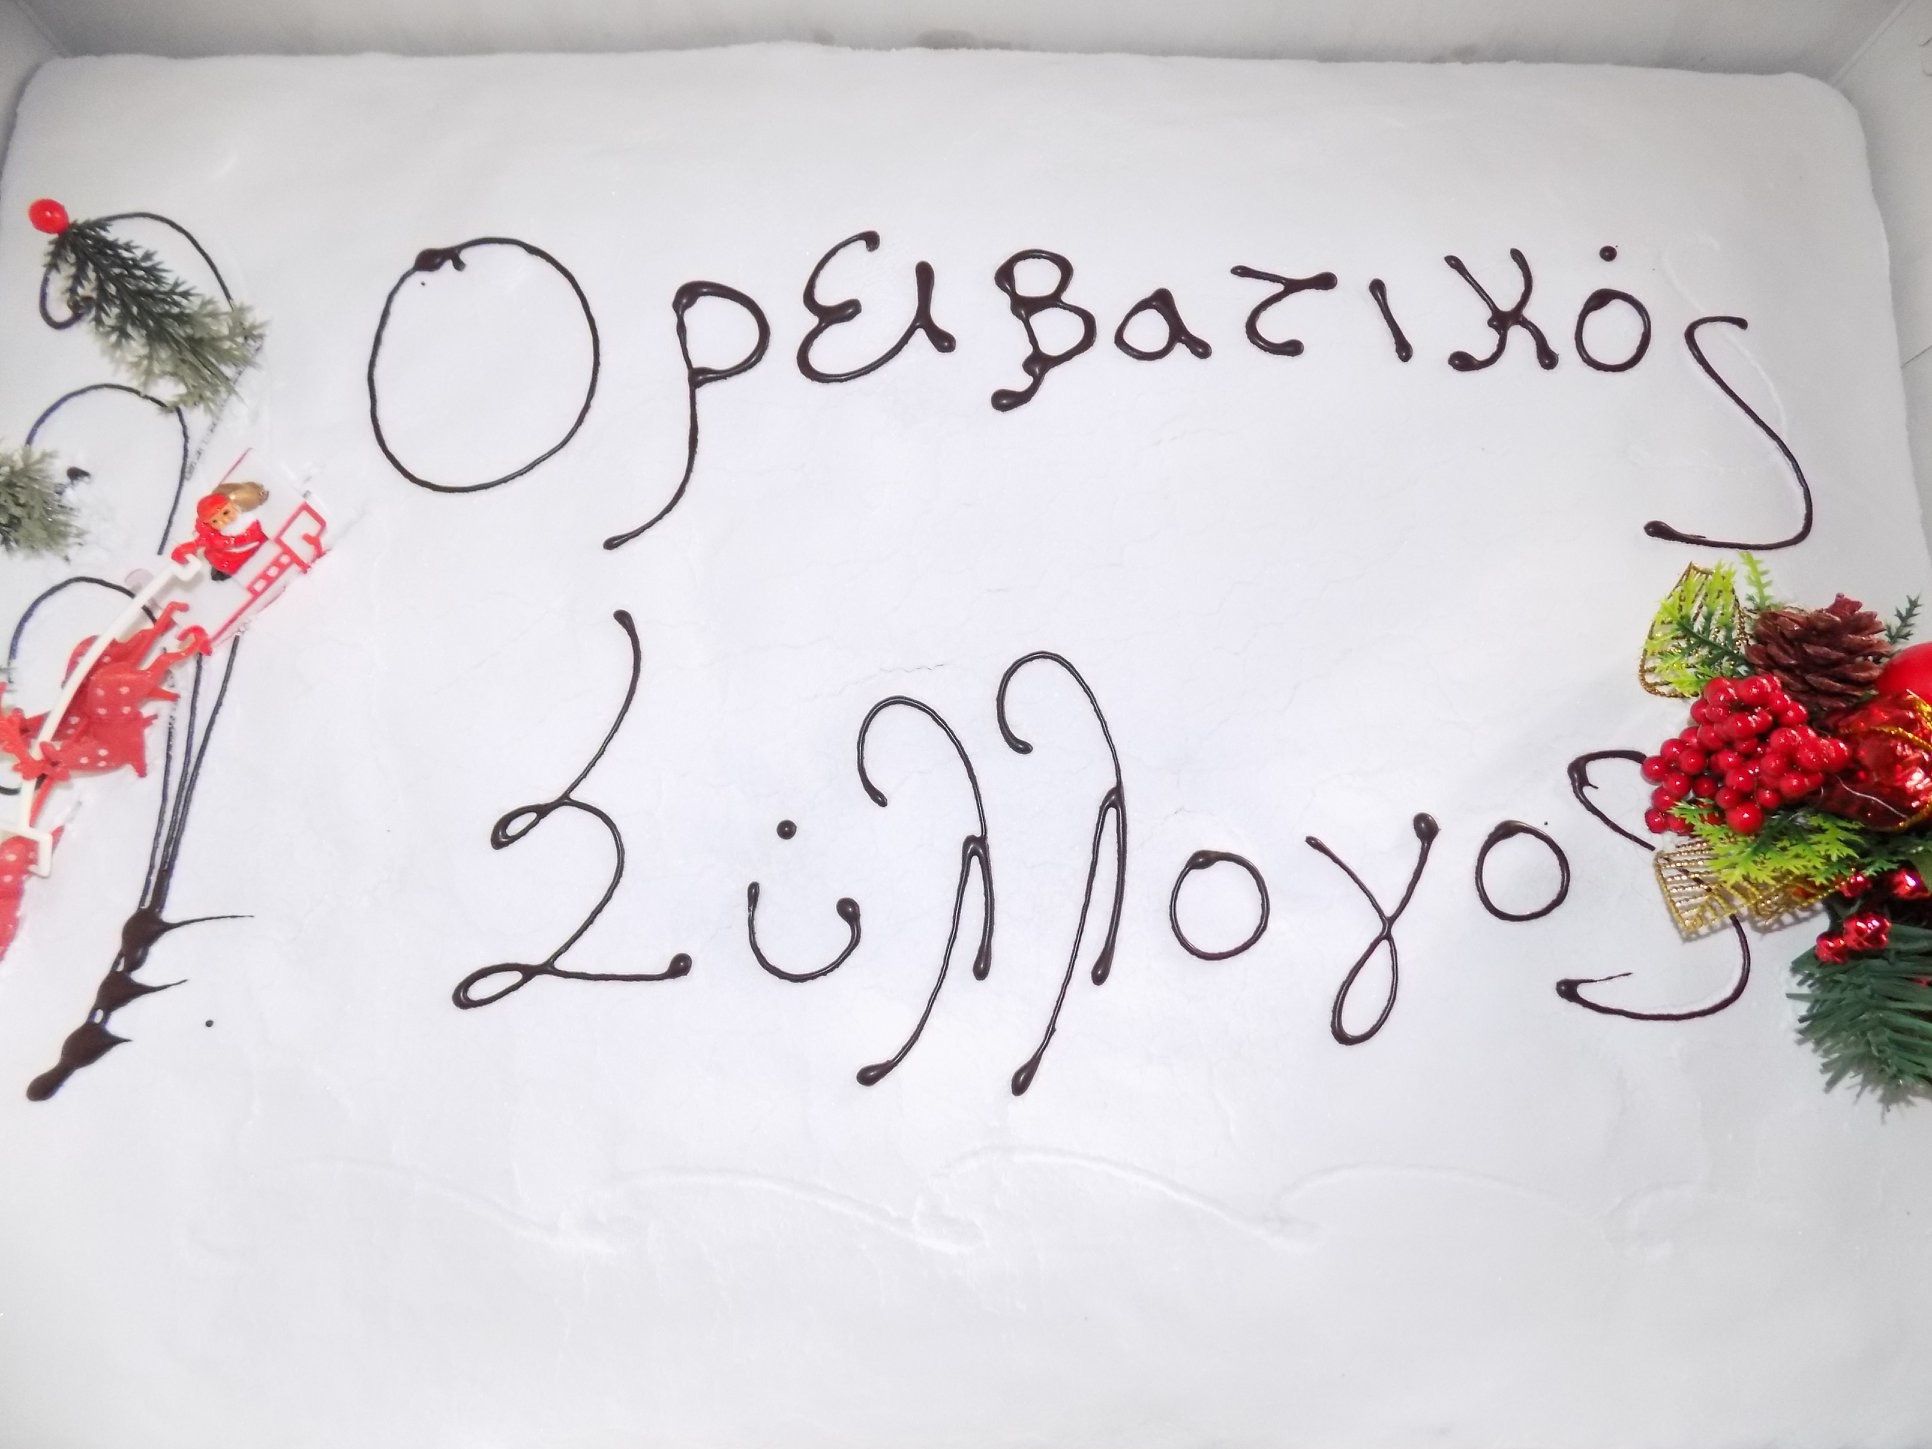 Ορειβατικός
Σύλλογος